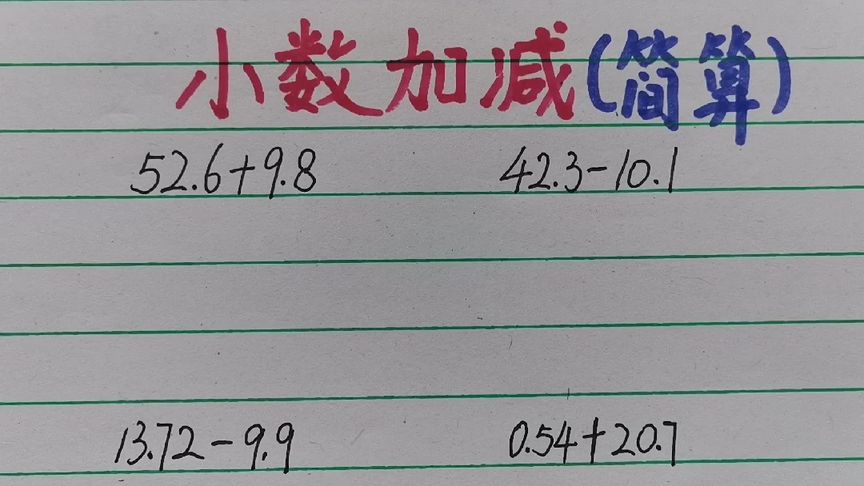 小数加减(简算)
52.6+9.8 42.3-10.1
13.72-9.9 0.54+20.7